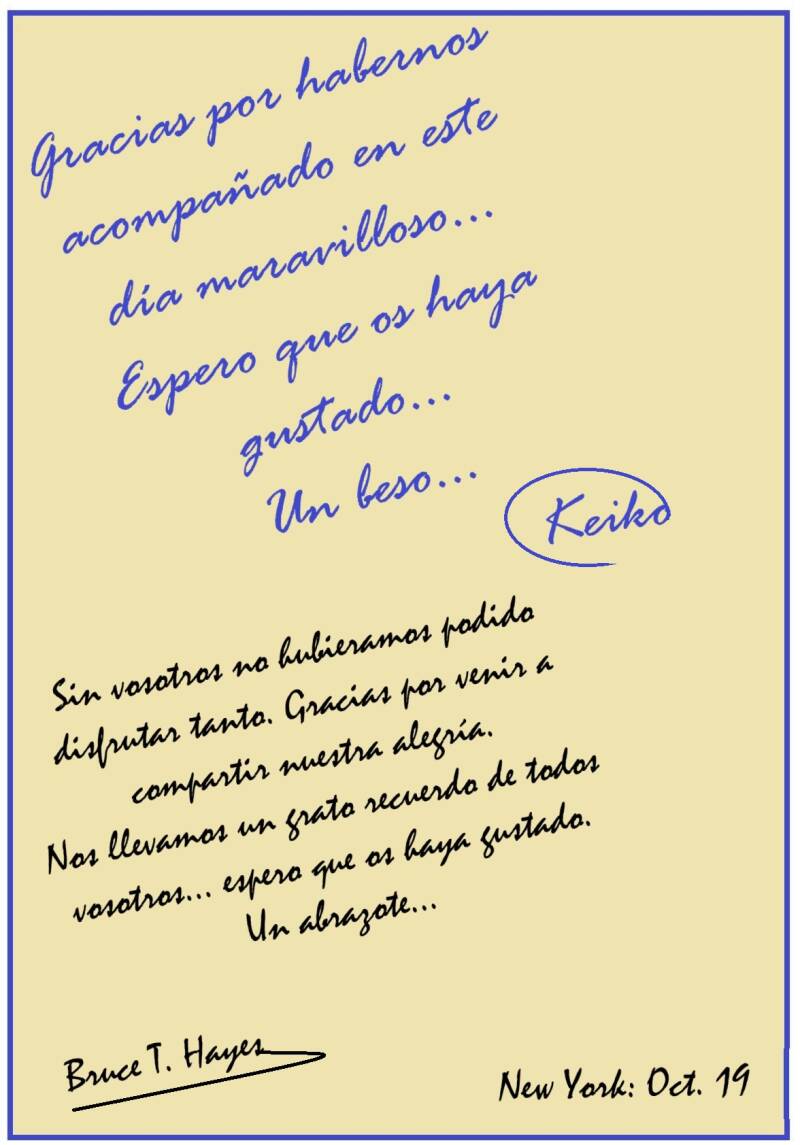 Gracias por habernos
acompañado en este
día maravilloso...
Espero que os haya
gustado...
Un beso...
Keiko
Sin vosotros no hubieramos podido
disfrutar tanto. Gracias por venir a
compartir nuestra alegría.
Nos llevamos un grato recuerdo de todos
vosotros... espero que os haya gustado.
Un abrazote...
Bruce T. Hayes
New York: Oct. 19